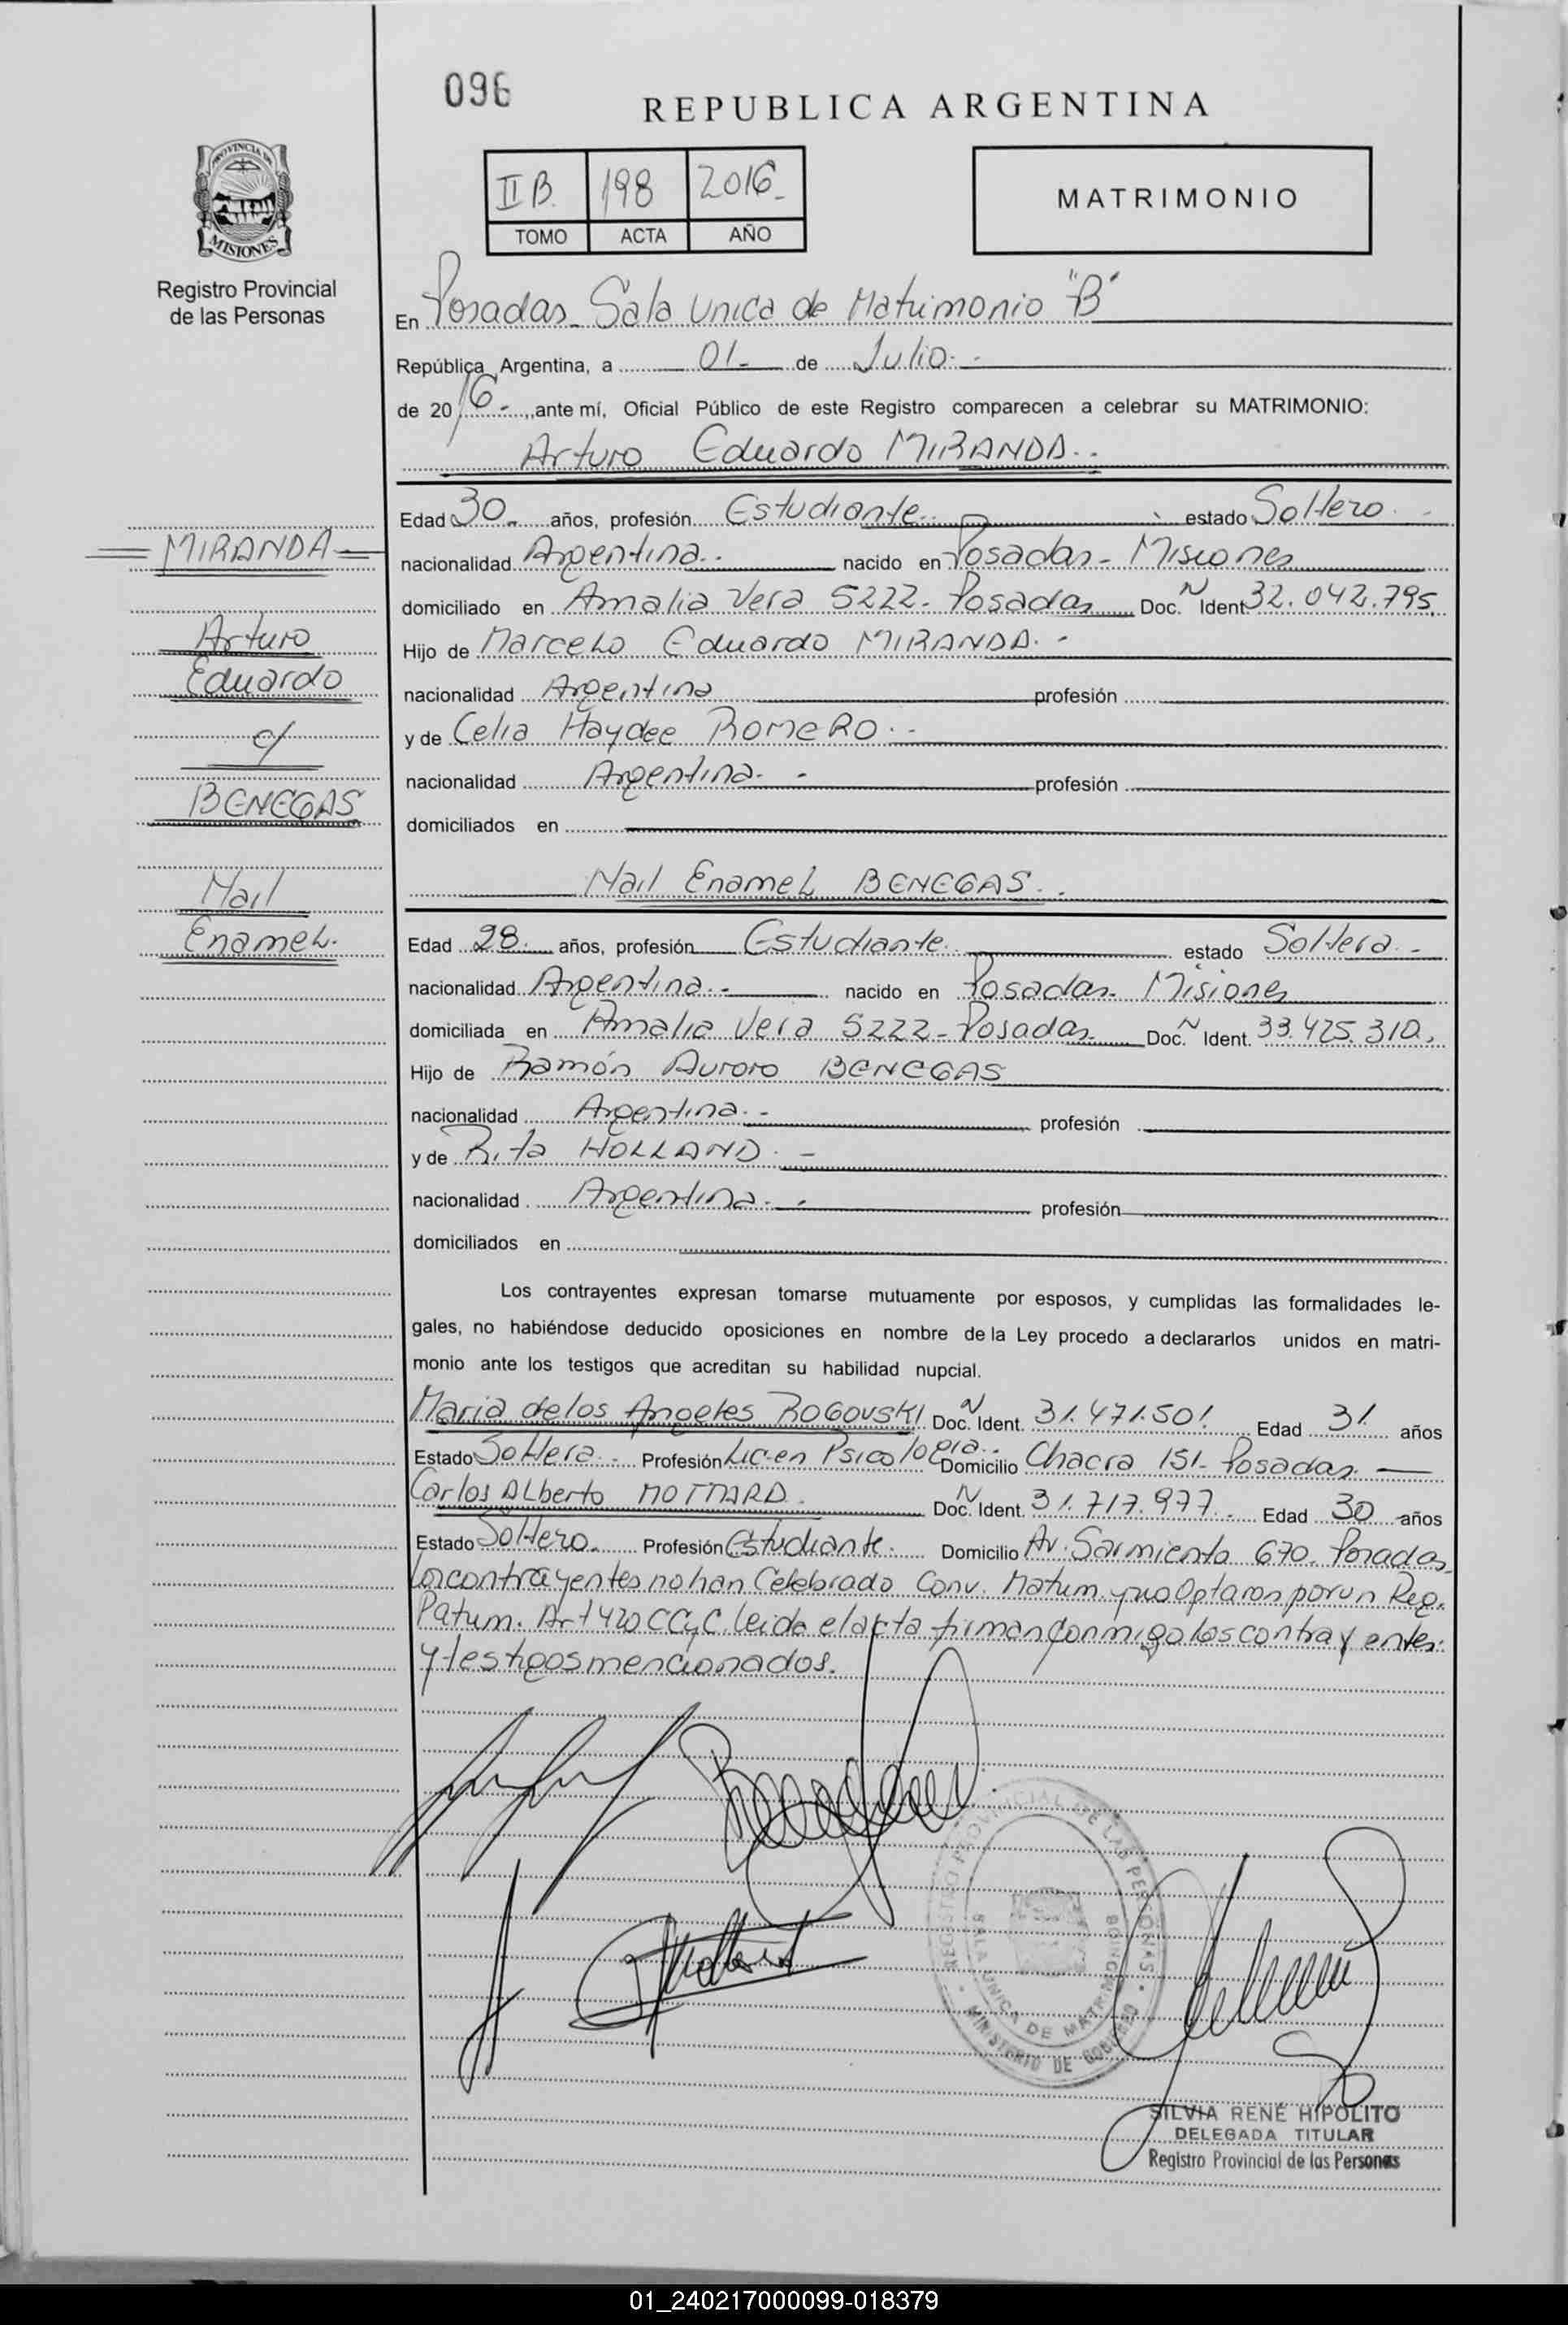 096
REPUBLICA ARGENTINA
II B. 198 2016-
TOMO ACTA AÑO
MATRIMONIO
PROVINCIA DE
MISIONES
Registro Provincial
de las Personas
En Posadas- Sala Unica de Matrimonio "B"
República Argentina, a 01- de Julio.-
de 2016.-, ante mí, Oficial Público de este Registro comparecen a celebrar su MATRIMONIO:
Arturo Eduardo MIRANDA.-
Edad 30- años, profesión Estudiante.- estado Soltero.-
nacionalidad Argentina.- nacido en Posadas- Misiones
domiciliado en Amalia Vera 5222- Posadas Doc. N Ident 32.042.795.
Hijo de Marcelo Eduardo MIRANDA.-
nacionalidad Argentina profesión
y de Celia Haydee ROMERO.-
nacionalidad Argentina.- profesión
domiciliados en
MIRANDA
Arturo
Eduardo
c/
BENEGAS
Nail
Enamel.
Nail Enamel BENEGAS.-
Edad 28. años, profesión Estudiante.- estado Soltera.-
nacionalidad Argentina.- nacido en Posadas- Misiones
domiciliada en Amalia Vera 5222- Posadas- Doc. N Ident. 33.425.310.
Hijo de Ramón Auroro BENEGAS
nacionalidad Argentina.- profesión
y de Rita HOLLAND.-
nacionalidad Argentina.- profesión
domiciliados en
Los contrayentes expresan tomarse mutuamente por esposos, y cumplidas las formalidades le-
gales, no habiéndose deducido oposiciones en nombre de la Ley procedo a declararlos unidos en matri-
monio ante los testigos que acreditan su habilidad nupcial.
Maria de los Angeles ROGOVSKI Doc. N Ident. 31.471.501. Edad 31. años
Estado Soltera.- Profesión Lic en Psicologia.- Domicilio Chacra 151- Posadas.-
Carlos Alberto MOTTARD. Doc. N Ident. 31.717.977. Edad 30 años
Estado Soltero. Profesión Estudiante. Domicilio Av. Sarmiento 670- Posadas-
Los contrayentes no han Celebrado Conv. Matrim. y no Optaron por un Reg.
Patrim. Art 420 CCyC. leida el acta firman conmigo los contrayentes
y testigos mencionados.
REGISTRO PROVINCIAL DE LAS PERSONAS
SALA UNICA DE MATRIMONIO
MINISTERIO DE GOBIERNO
SILVIA RENÉ HIPÓLITO
DELEGADA TITULAR
Registro Provincial de las Personas
01_240217000099-018379